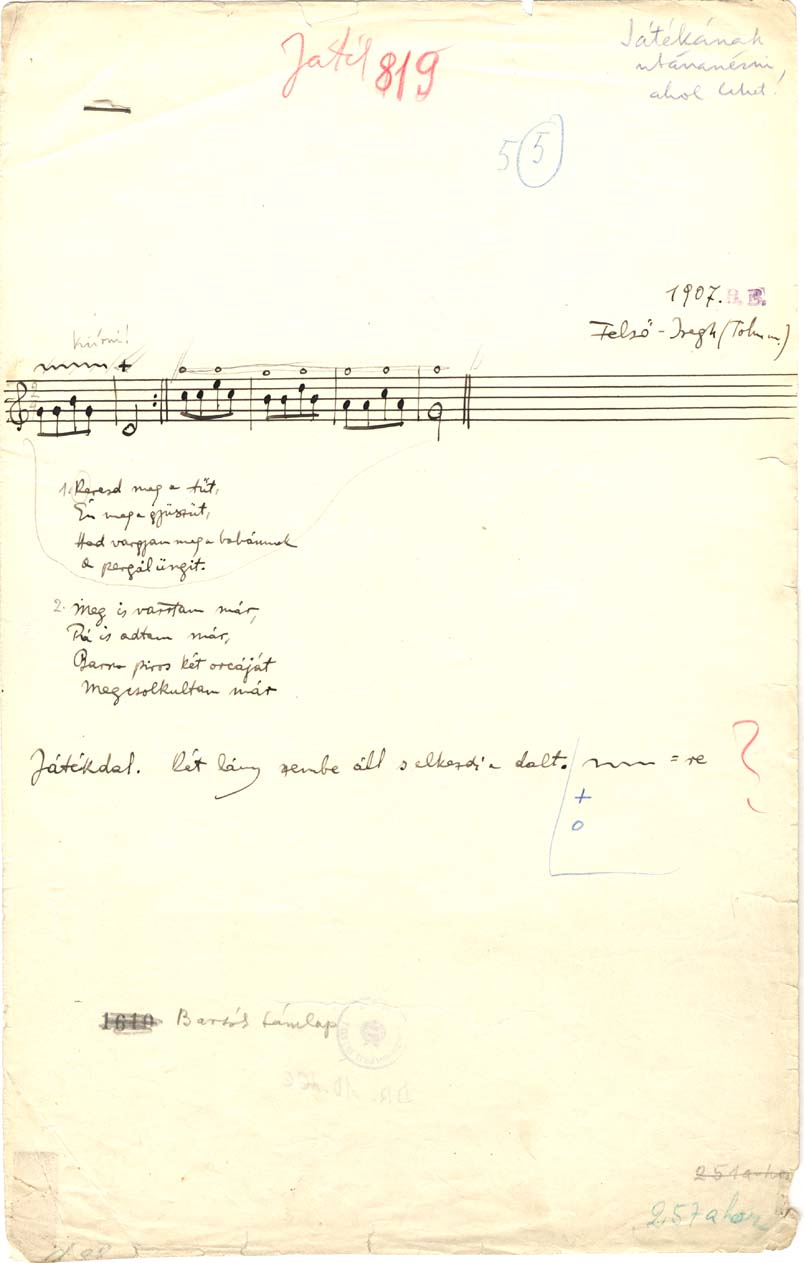 Játék 819
Játékának
utánanézni,
ahol lehet!
5 5
1907. B. B.
Felső-Iregh (Tolna m.)
Kiírni!
1. Keresd meg a tűt,
Én meg a gyűszűt,
Had varrjam meg a babámnak
a pergálüngit.
2. Meg is varrtam már,
Rá is adtam már,
Barna piros két orcáját
Megcsolkultam már
Játékdal. Két lány szembe áll s elkezdi a dalt. = re ?
+
o
1610 Bartók támlap
251a-hoz
257a hoz